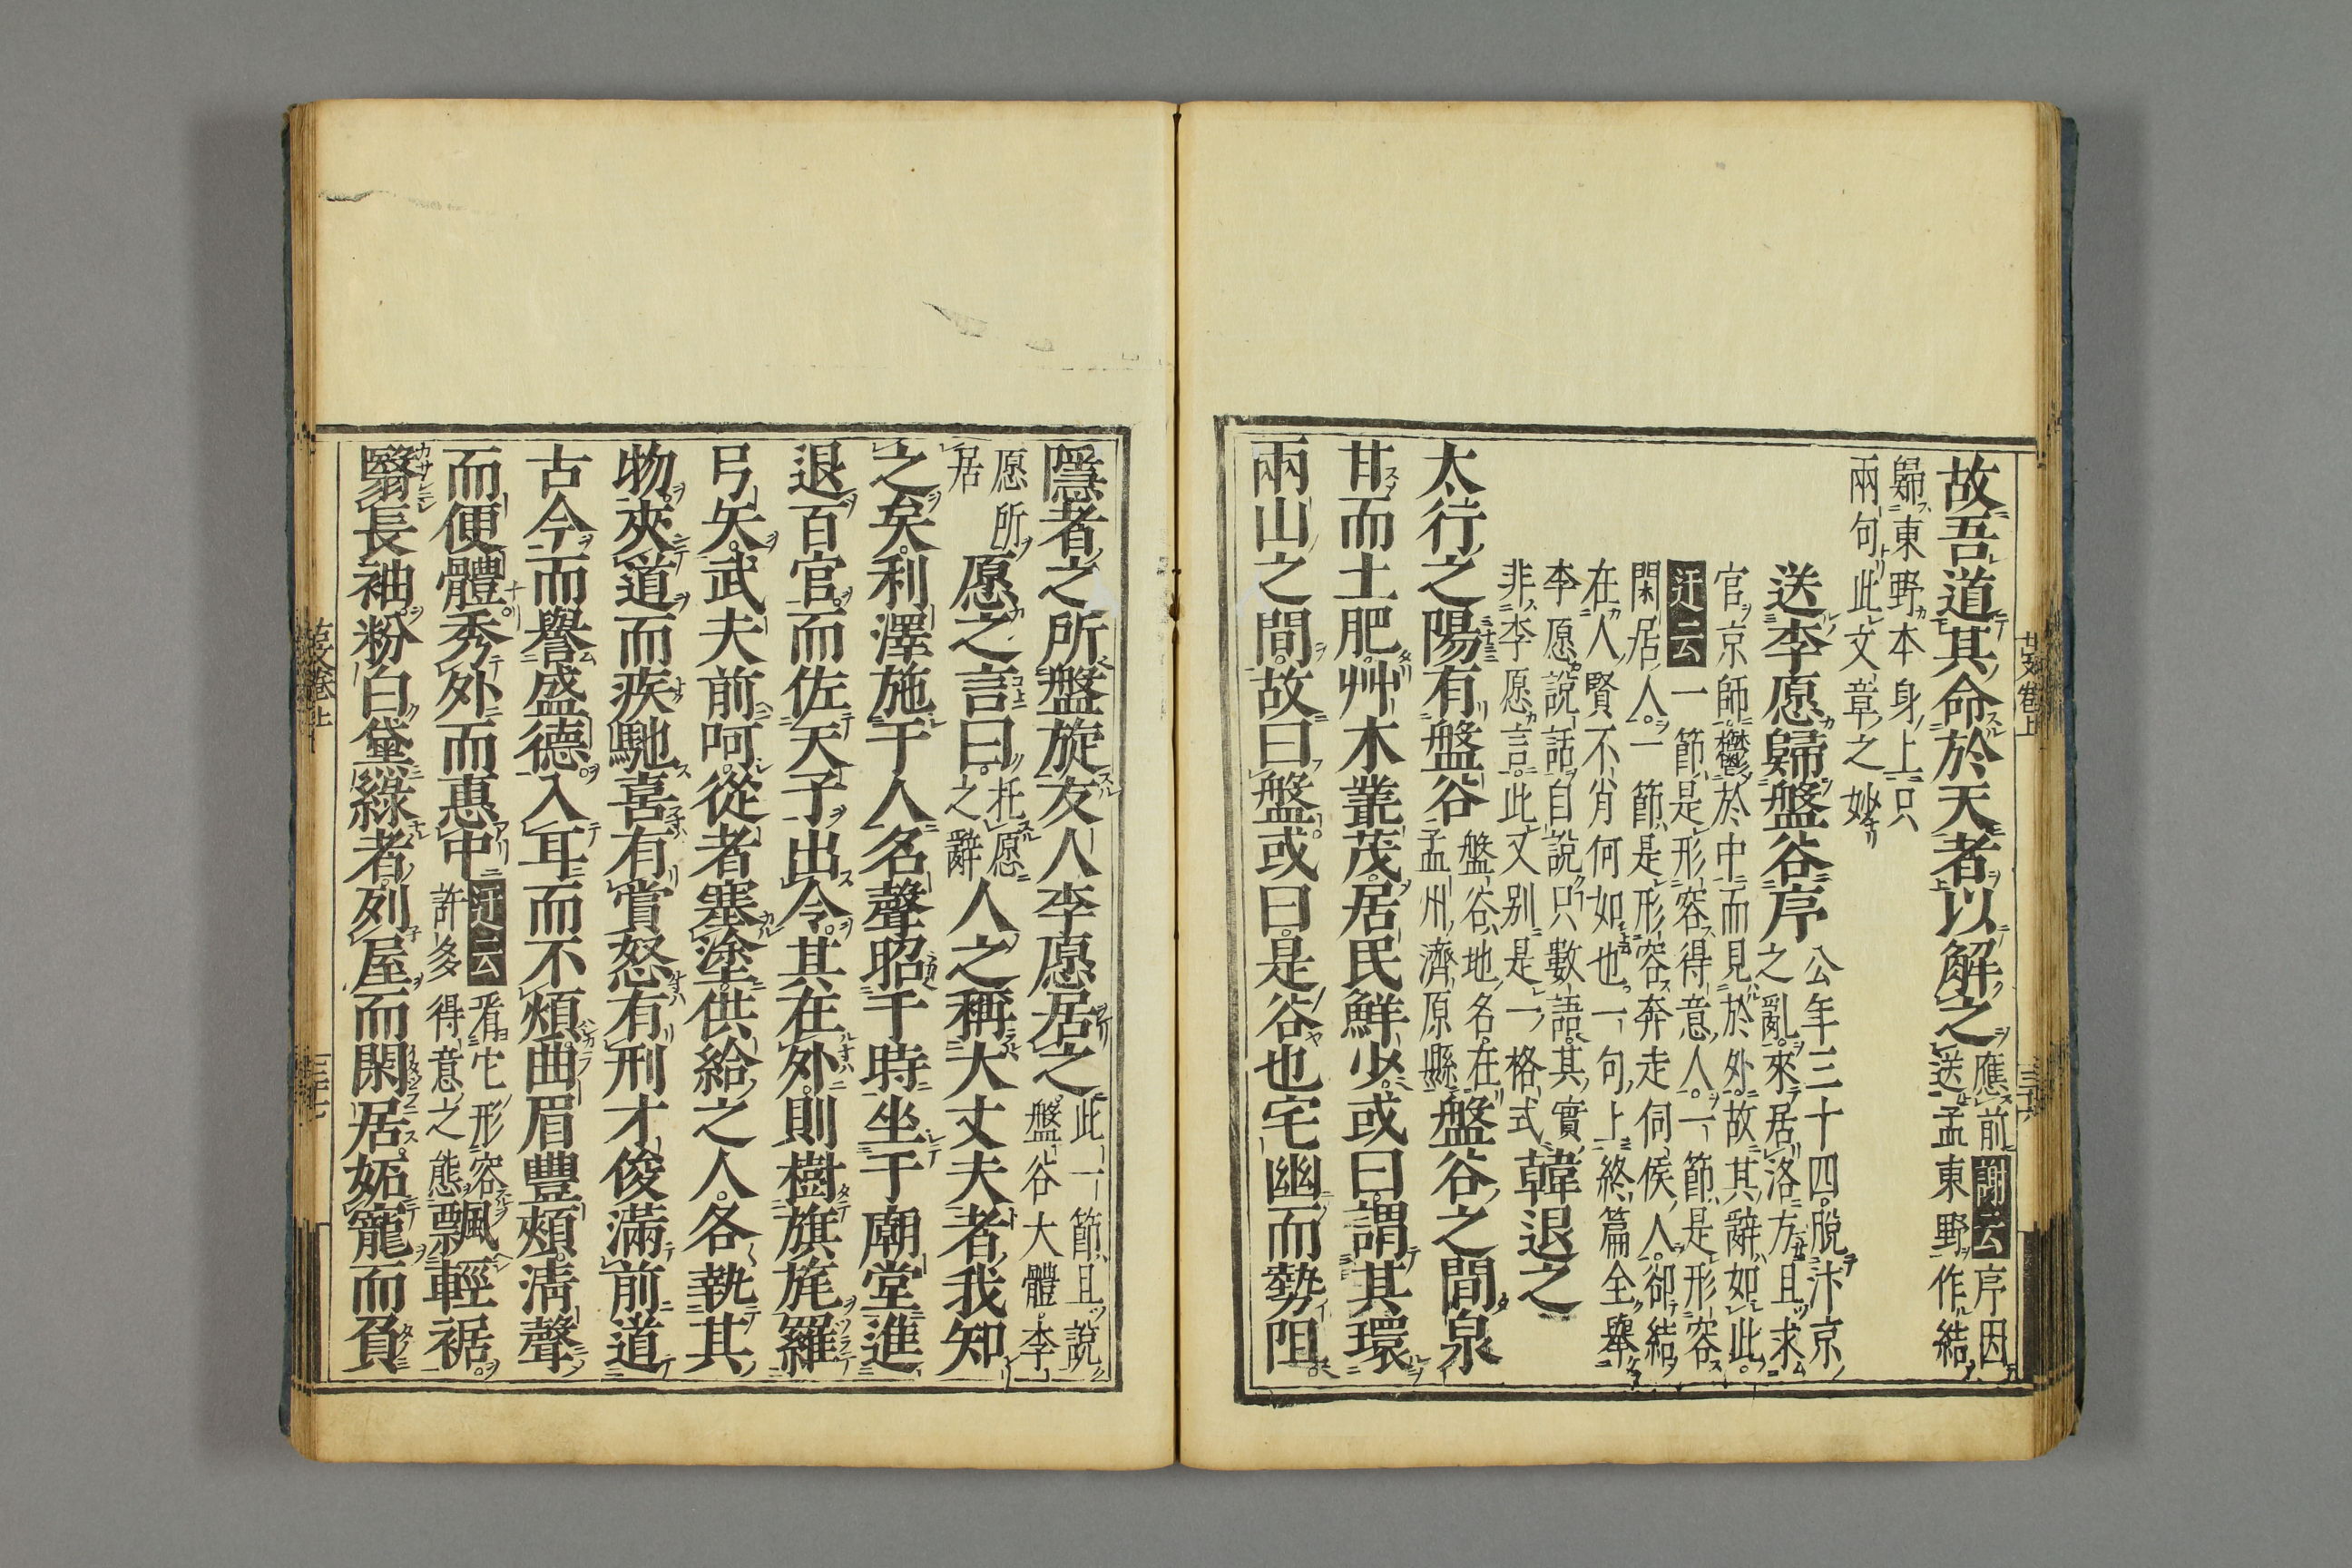 故吾道其命於天者以解之應前闢云序因
送孟東野作結
歸東野本身上只
兩句此文章之妙
送李愿歸盤谷序公年三十四脫汴京
之亂來居洛方且求
官京師鬱於中而見於外故其辭如此
迂云一節是形容得意人一節是形容
閑居人一節是形容奔走伺候人卻結
在人賢不肖何如也一句上終篇全舉
李愿說話自說只數語其實
非李愿言此又別是一格式韓退之
太行之陽有盤谷盤谷地名在
孟州濟原縣盤谷之間泉
甘而土肥艸木叢茂居民鮮少或曰謂其環
兩山之間故曰盤或曰是谷也宅幽而勢阻
古文卷上
隱者之所盤旋友人李愿居之此一節且說
盤谷大體李
愿所
居愿之言曰托愿
之辭人之稱大丈夫者我知
之矣利澤施于人名聲昭于時坐于廟堂進
退百官而佐天子出令其在外則樹旗旄羅
弓矢武夫前呵從者塞塗供給之人各執其
物夾道而疾馳喜有賞怒有刑才俊滿前道
古今而譽盛德入耳而不煩曲眉豐頰淸聲
而便體秀外而惠中迂云看它形容
許多得意之態飄輕裾
翳長袖粉白黛綠者列屋而閑居妬寵而負
古文卷上